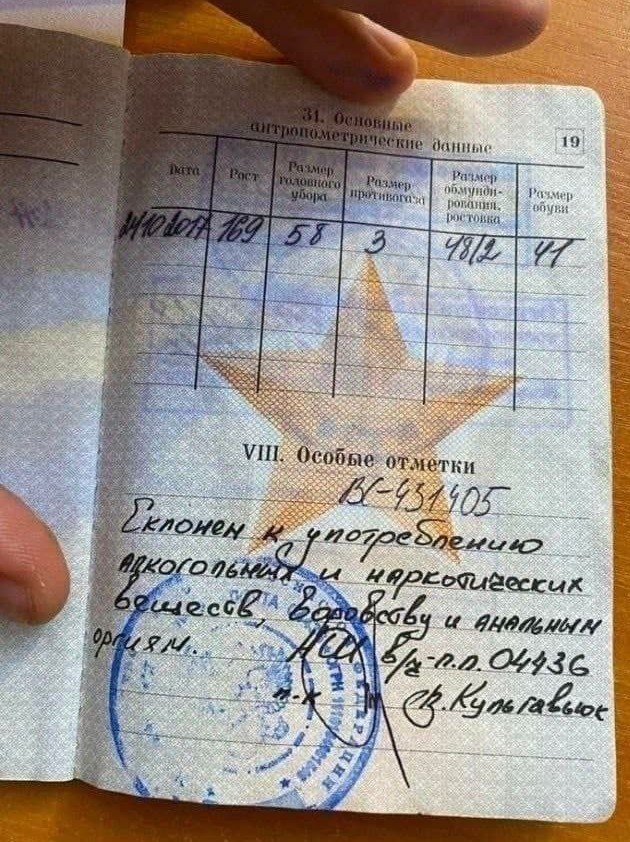 31. Основные
антропометрические данные
19
Дата Рост Размер головного убора Размер противогаза Размер обмунди-рования, ростовка Размер обуви
24.10.2017 169 58 3 48/2 41
VIII. Особые отметки
ВС-431405
Склонен к употреблению
алкогольных и наркотических
веществ, воровству и анальным
оргиям. НШ в/ч-п.п. 04436
п-к Кульгавьюк